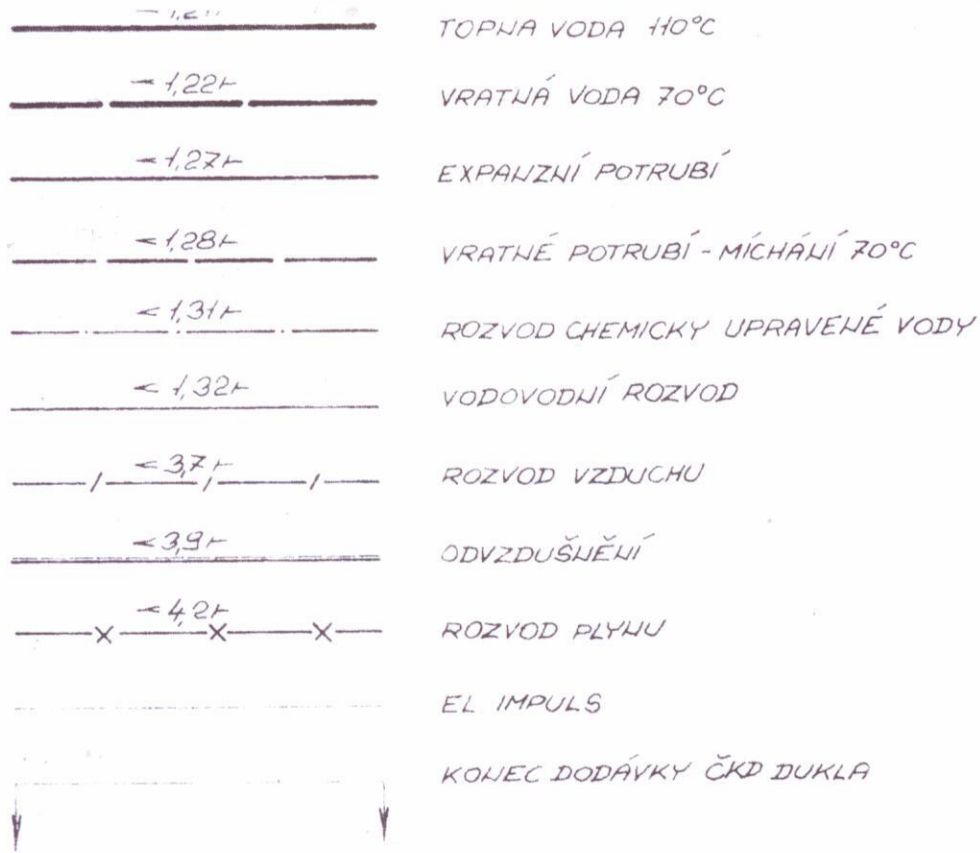 TOPNA VODA 110°C
<1,22⊢ VRATNÁ VODA 70°C
<1,27⊢ EXPANZNÍ POTRUBÍ
<1,28⊢ VRATNÉ POTRUBÍ - MÍCHÁNÍ 70°C
<1,31⊢ ROZVOD CHEMICKY UPRAVENÉ VODY
<1,32⊢ VODOVODNÍ ROZVOD
<3,7⊢ ROZVOD VZDUCHU
<3,9⊢ ODVZDUŠNĚNÍ
<4,2⊢ ROZVOD PLYNU
EL IMPULS
KONEC DODÁVKY ČKD DUKLA